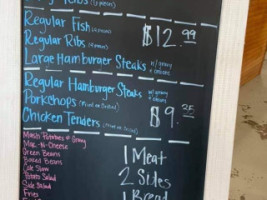 Regular Fish
Regular Ribs
$12.99
Large Hamburger Steaks w/ gravy
+ onions
Regular Hamburger Steaks w/ gravy
+ onions
Porkchops (Fried or Grilled)
$9.25
Chicken Tenders
Mash Potatoes & Gravy
Mac-N-Cheese
Green Beans
Baked Beans
Cole Slaw
Potato Salad
Side Salad
Fries
1 Meat
2 Sides
1 Bread